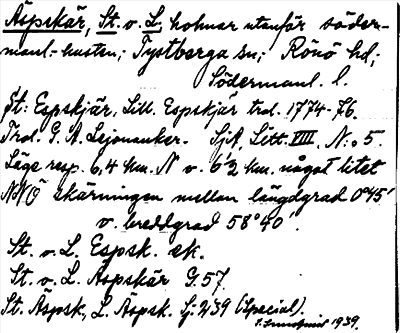 Äspskär, St. o. L., holmar utanför söder-
manl.-kusten; Tystberga sn; Rönö hd;
Södermanl. l.
St: Espskjär, Lill. Espskjär trol. 1774-76.
Trol. G. A. Lejonanker. SjA Litt. VIII. N:o 5.
Läge resp. 6,4 km. N o. 6,2 km. något litet
NNO skärningen mellan längdgrad 0°45'
o. breddgrad 58°40'.
St. o. L. Espsk. ek.
St. o. L. Aspskär G. 57.
St. Äspsk, L. Aspsk. Sj: 239 (Special).
1939.